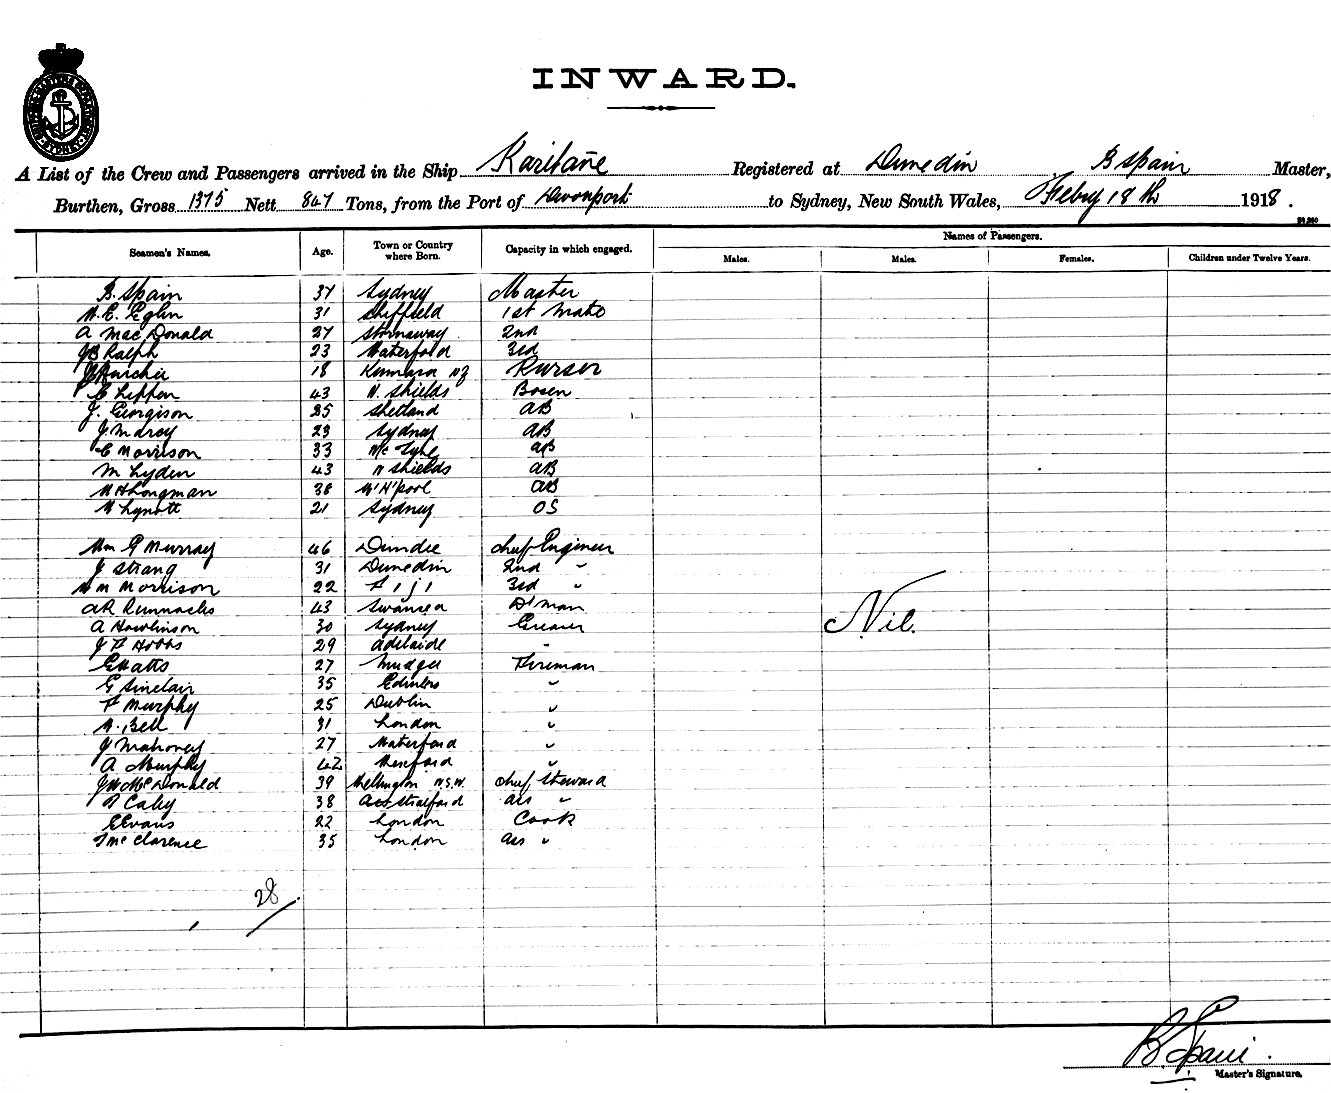 INWARD.
A List of the Crew and Passengers arrived in the Ship Karitane Registered at Dunedin B Spain Master,
Burthen, Gross 1375 Nett 847 Tons, from the Port of Devonport to Sydney, New South Wales, Feby 18th 1918.
Names of Passengers.
Seamen's Names. Age. Town or Country where Born. Capacity in which engaged. Males. Males. Females. Children under Twelve Years.
B. Spain 37 Sydney Master
W. E. Eglin 31 Sheffield 1st Mate
A MacDonald 27 Stornaway 2nd
JB Ralph 23 Waterford 3rd
18 Kumara NZ Purser
C Lippen 43 N. Shields Bosen
J. Georgison 25 Shetland AB
J. Marcy 23 Sydney AB
C Morrison 33 AB
M Lyden 43 N Shields AB
W H Longman 38 W H'pool AB
W Lynott 21 Sydney OS
Wm G Murray 46 Dundee Chief Engineer
J Strang 31 Dunedin 2nd "
Wm Morrison 22 Fiji 3rd "
AR 43 Swansea D'man
A Howlinson 30 Sydney Greaser
J F Hobbs 29 Adelaide "
G Watts 27 Mudgee Fireman
G Sinclair 35 Edinbro "
F Murphy 25 Dublin "
W. Bell 31 London "
J Mahoney 27 Waterford "
A Murphy 42 Hereford "
JW McDonald 39 Wellington N.S.W. Chief Steward
P Caley 38 Stratford ass "
E Evans 22 London Cook
J McClarence 35 London ass "
Nil.
28
B. Spain.
Master's Signature.